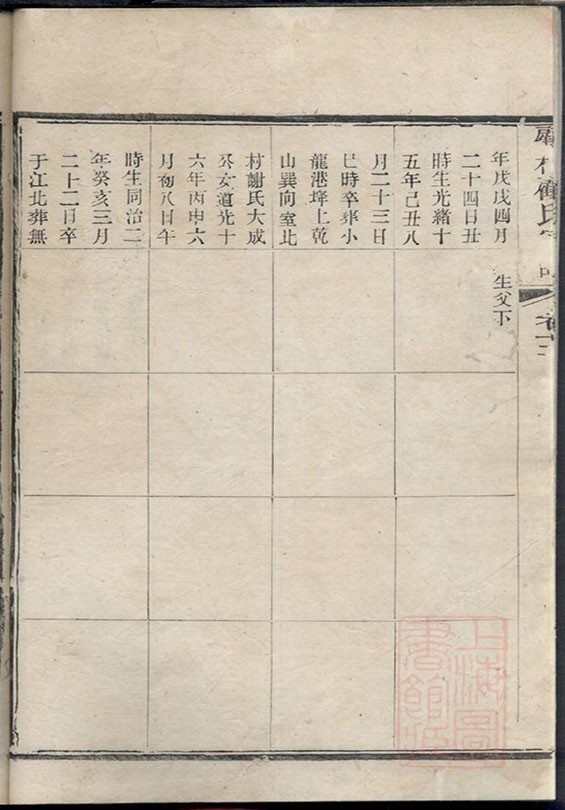 村
氏
年戊戌四月
二十四日丑
時生光緒十
五年己丑八
月二十三日
巳時卒葬小
龍港埠上乾
山巽向室北
村謝氏大成
女道光十
六年丙申六
月初八日午
時生同治二
年癸亥三月
二十二日卒
于江北葬無
生父下
上海圖書館藏